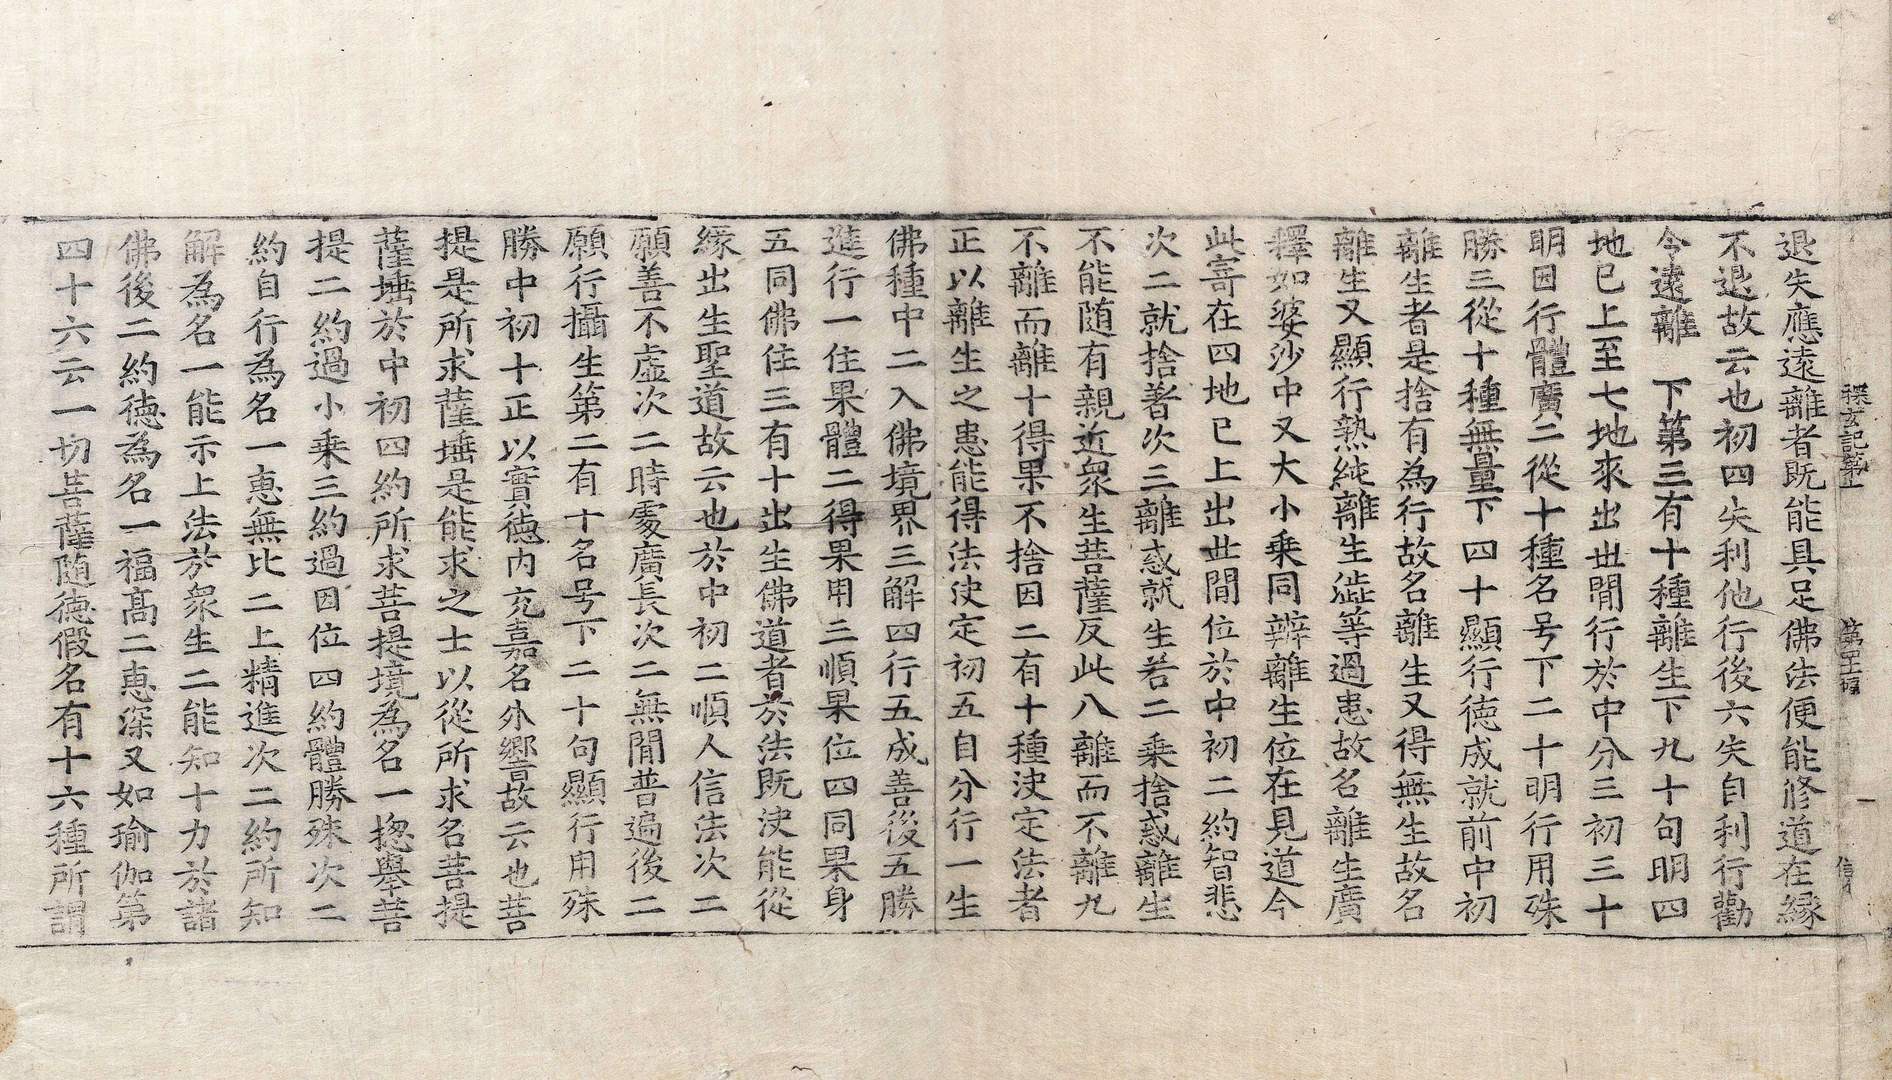 退失應遠離者既能具足佛法便能修道在緣
不退故云也初四失利他行後六失自利行勸
今遠離　下第三有十種離生下九十句明四
地已上至七地來出世間行於中分三初三十
明因行體廣二從十種名号下二十明行用殊
勝三從十種無量下四十顯行德成就前中初
離生者是捨有為行故名離生又得無生故名
離生又顯行熟純離生澁等過患故名離生廣
釋如婆沙中又大小乘同辨離生位在見道今
此寄在四地已上出世間位於中初二約智悲
次二就捨著次三離惑就生若二乘捨惑離生
不能随有親近衆生菩薩反此八離而不離九
不離而離十得果不捨因二有十種决定法者
正以離生之患能得法决定初五自分行一生
佛種中二入佛境界三解四行五成善後五勝
進行一住果體二得果用三順果位四同果身
五同佛住三有十出生佛道者於法既决能從
緣出生聖道故云也於中初二順人信法次二
願善不虛次二時處廣長次二無間普遍後二
願行攝生第二有十名号下二十句顯行用殊
勝中初十正以實德内充嘉名外響故云也菩
提是所求薩埵是能求之士以從所求名菩提
薩埵於中初四約所求菩提境為名一揔舉菩
提二約過小乘三約過因位四約體勝殊次二
約自行為名一惠無比二上精進次二約所知
解為名一能示上法於衆生二能知十力於諸
佛後二約德為名一福高二惠深又如瑜伽第
四十六云一切菩薩随德假名有十六種所謂